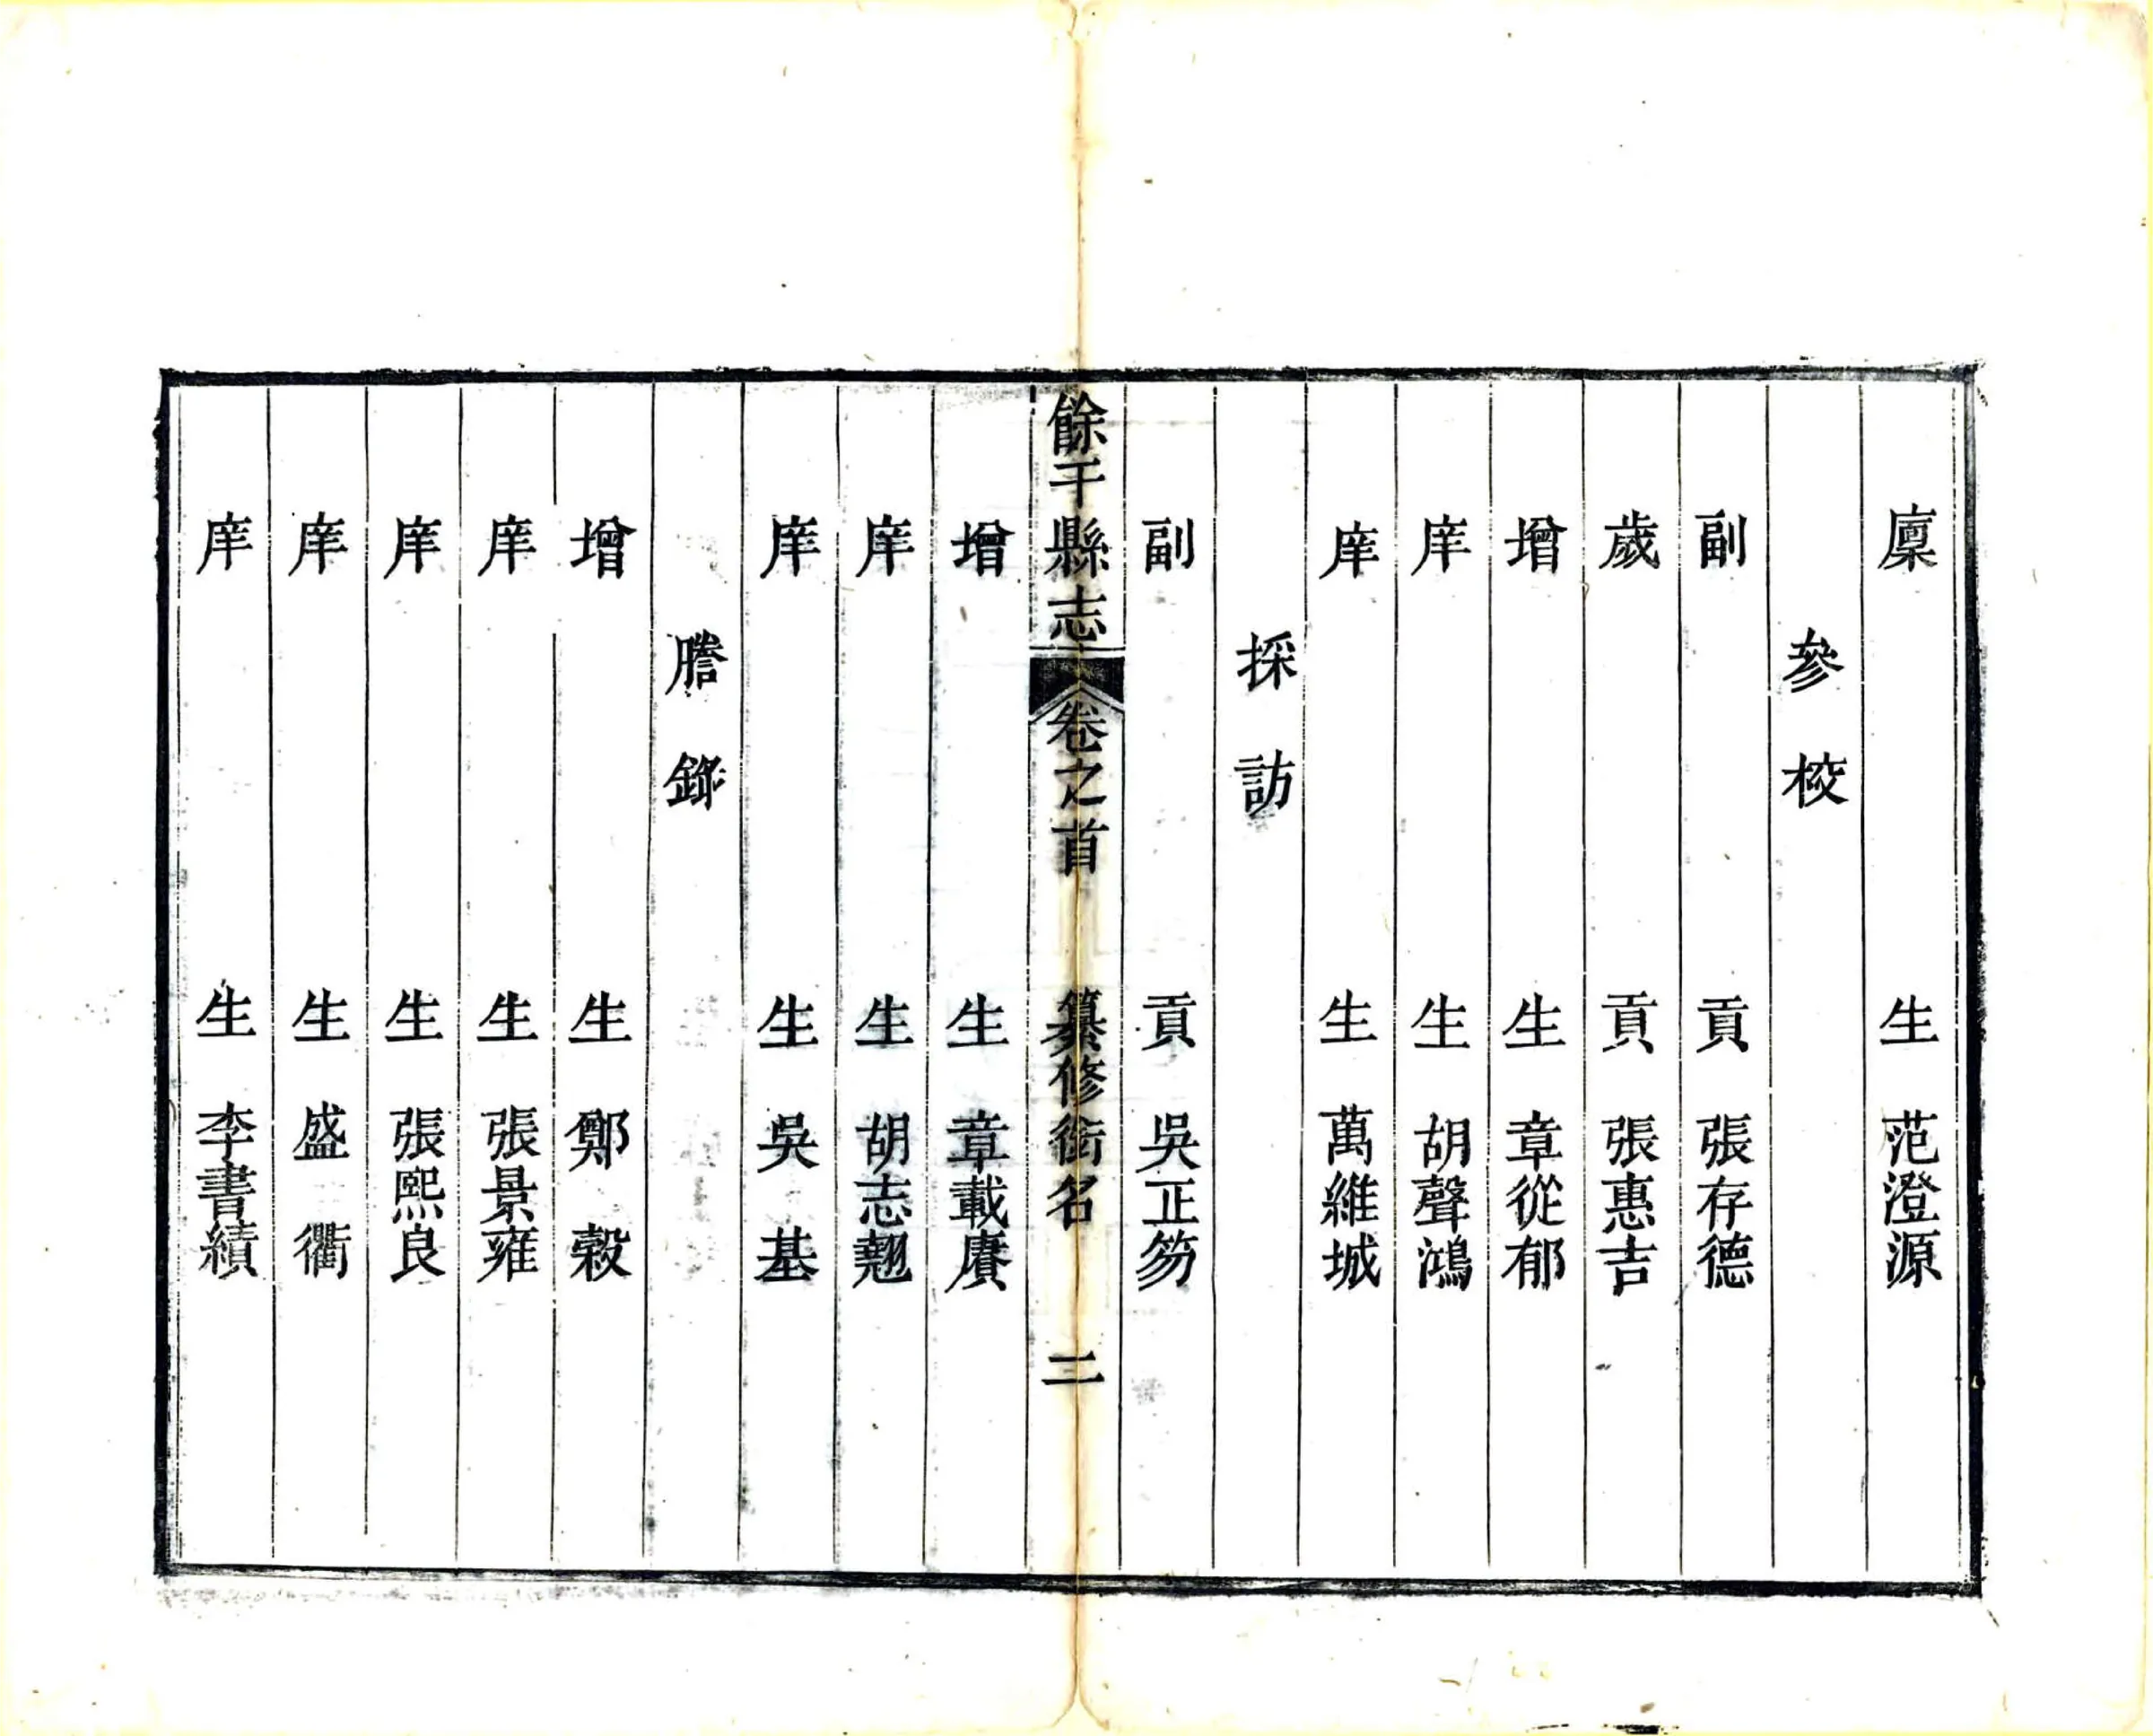 廪　生　范澄源
參　校
副　貢　張存德
歲　貢　張惠吉
增　生　章從郁
庠　生　胡聲鴻
庠　生　萬維城
採　訪
副　貢　吳正笏
餘干縣志　卷之首　纂修銜名　二
增　生　章載賡
庠　生　胡志翹
庠　生　吳　基
謄　錄
增　生　鄭　榖
庠　生　張景雍
庠　生　張熙良
庠　生　盛　衢
庠　生　李書績